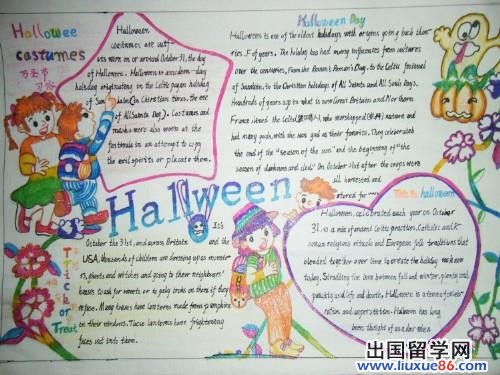 Hallowee
castumes
万圣节
习俗
Halloween
costumes are outf-
its worn on or around October 31, the day
of Halloween. Halloween is a modern-day
holiday originating in the Celtic pagan holiday
of Samhain (in Christian times, the eve
of All Saints Day). Costumes and
masks were also worn at the
festivals in an attempt to copy
the evil spirits or placate them.
Halloween Day
Halloween is one of the oldest holidays with origins going back thou-
of years. The holiday has had many influences from cultures
over the centuries. From the Roman's Pomona's Day, to the Celtic festival
of Samhain, to the Christian holidays of All Saints and All Souls Days.
Hundreds of years ago in what is now Great Britain and Northern
France lived the Celts who worshipped nature and
had many gods, with the sun god as their favorite. They celebrated
the end of the "season of the sun" and the beginning of "the
season of darkness and cold." On October 31st after the crops were
all harvested and
stored for
Hallween
It's
October the 31st, and across Britain and the
USA, thousands of children are dressing up as monsters,
ghosts and witches and going to their neighbours'
houses to ask for sweets or to play tricks on them if they
refuse. Many homes have lanterns made from pumpkins
in their windows. These lanterns have frightening
faces cut into them.
Trick
or
Treat
halloween
Halloween, celebrated each year on October
31, is a mix of ancient Celtic practices, Catholic and
Roman religious rituals and European folk traditions that
blended together over time to create the holiday we know
today. Straddling the line between fall and winter, plenty and
paucity and life and death, Halloween is a time of celebration
and superstition. Halloween has long
been thought of as a day when
出国留学网
www.liuxue86.com